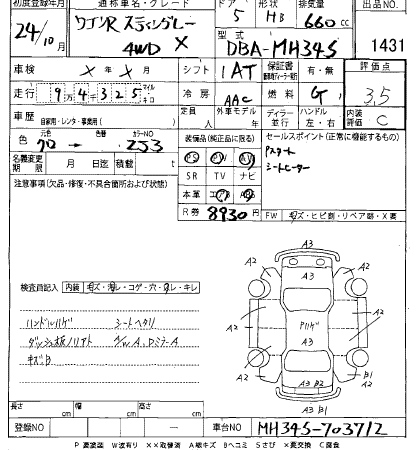 初度登録年月 通称車名・グレード ドア 形状 排気量 出品NO.
24/10 ワゴンR スティングレー 5 HB 660 cc
4WD X 型式 DBA-MH34S 1431
車検 × 年 × 月 シフト 1AT 保証書 有・無 評価点
走行 9万4千325 マイル キロ 冷房 AAC 燃料 G 3.5
車歴 自家用・レンタ・事業用( ) 定員 人 外車モデル 年 ディーラー 並行 ハンドル 左・右 内装評価 C
色 元色 クロ → 色替 カラーNO ZJ3 装備品(純正品に限る) セールスポイント(正常に機能するもの)
PS PW Pスタート
名義変更期限 月 日迄 積載 t SR TV ナビ シートヒーター
注意事項(欠品・修復・不具合箇所および状態) 本革
R券 8930 円 FW キズ・ヒビ割・リペア跡・X要
A3
A2 A3 A2
A2 A2
検査員記入 内装 キズ・汚レ・コゲ・穴・スレ・キレ
ハンドルハゲ シートヘタリ Pハゲ
ダッシュ板ノリアト A、Dミラー A
キズB A2 A3 A2
A2 B1
A3 B2 A2
長さ cm 幅 cm 高さ cm A3 B1
登録NO — 車台NO MH34S-703712
P 要塗装 W 波有り ×× 取替済 A 線キズ B ヘコミ S さび × 要交換 C 腐食